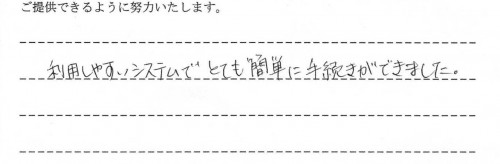 ご提供できるように努力いたします。
利用しやすいシステムでとても簡単に手続きができました。